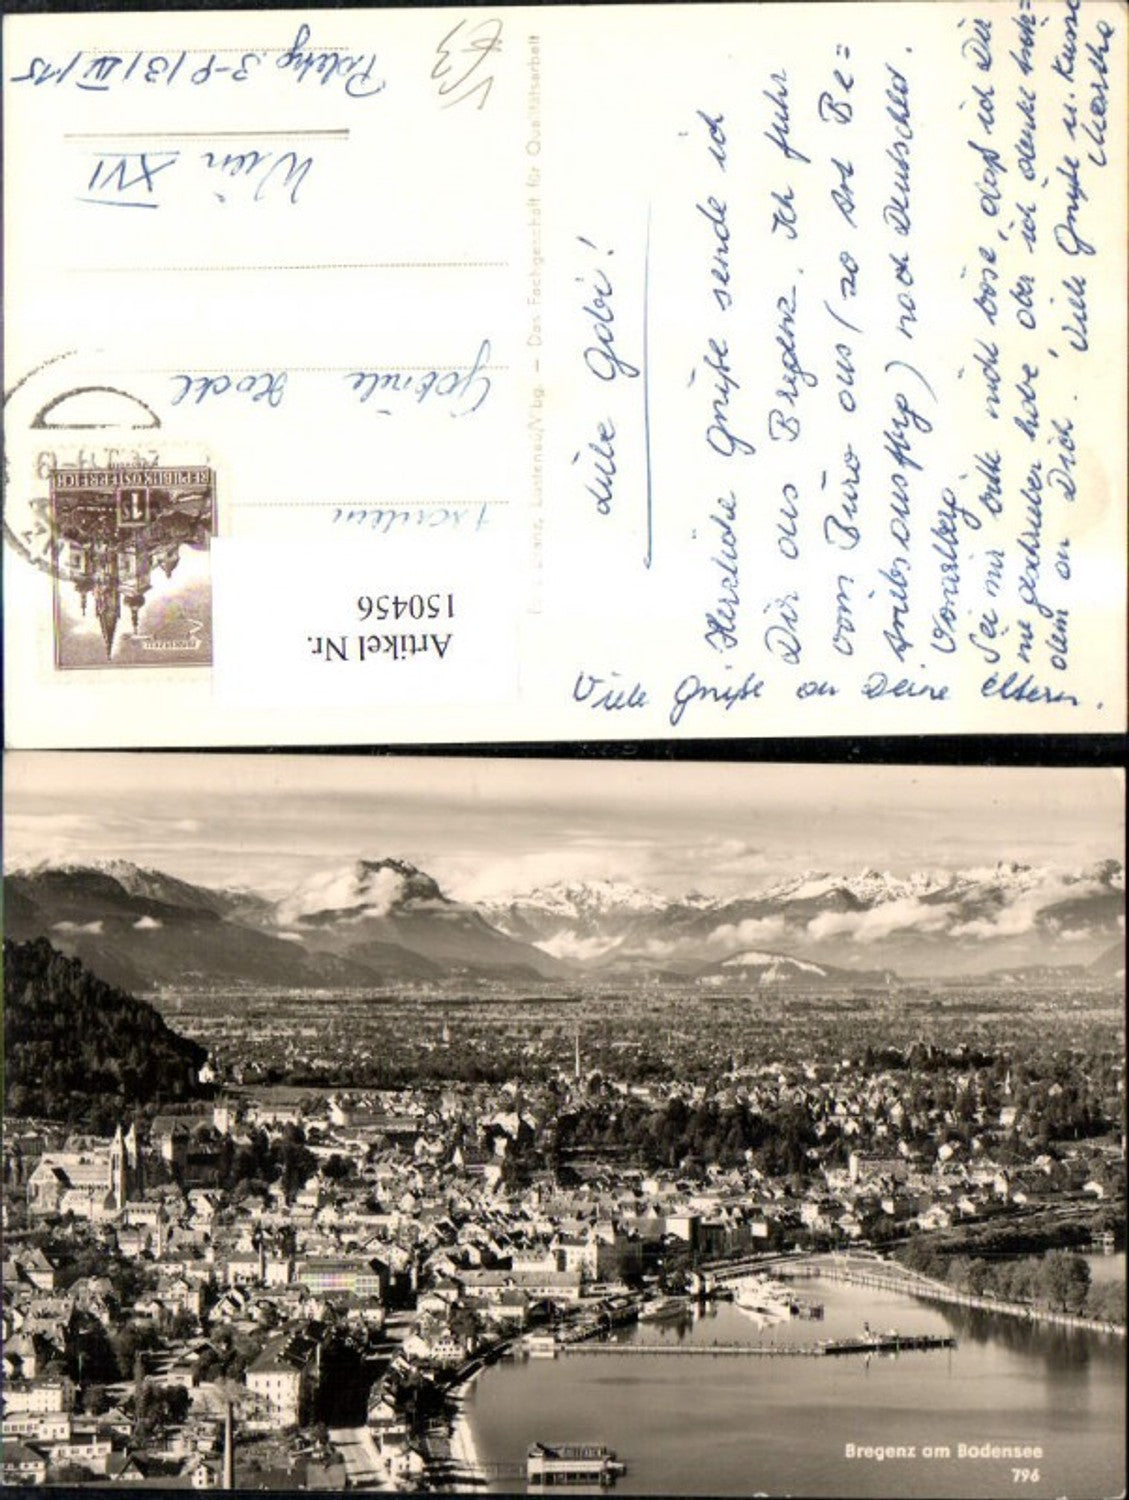 Liebe Gabi!
Herzliche Grüße sende ich
Dir aus Bregenz. Ich fuhr
vom Büro aus (so Art Be=
triebsausflug) nach Deutschld.
Vorarlberg.
Sei mir bitte nicht böse, daß ich Dir
nie geschrieben habe, aber ich denke trotz=
dem an Dich. Viele Grüße u. Küsse
Martha
Viele Grüße an Deine Eltern.
Das Fachgeschäft für Qualitätsarbeit
Lustenau/Vbg.
Fräulein
Gabriele
Wien XVI
3-9/3/IV/15
REPUBLIK ÖSTERREICH
1
Artikel Nr.
150456
Bregenz am Bodensee
796